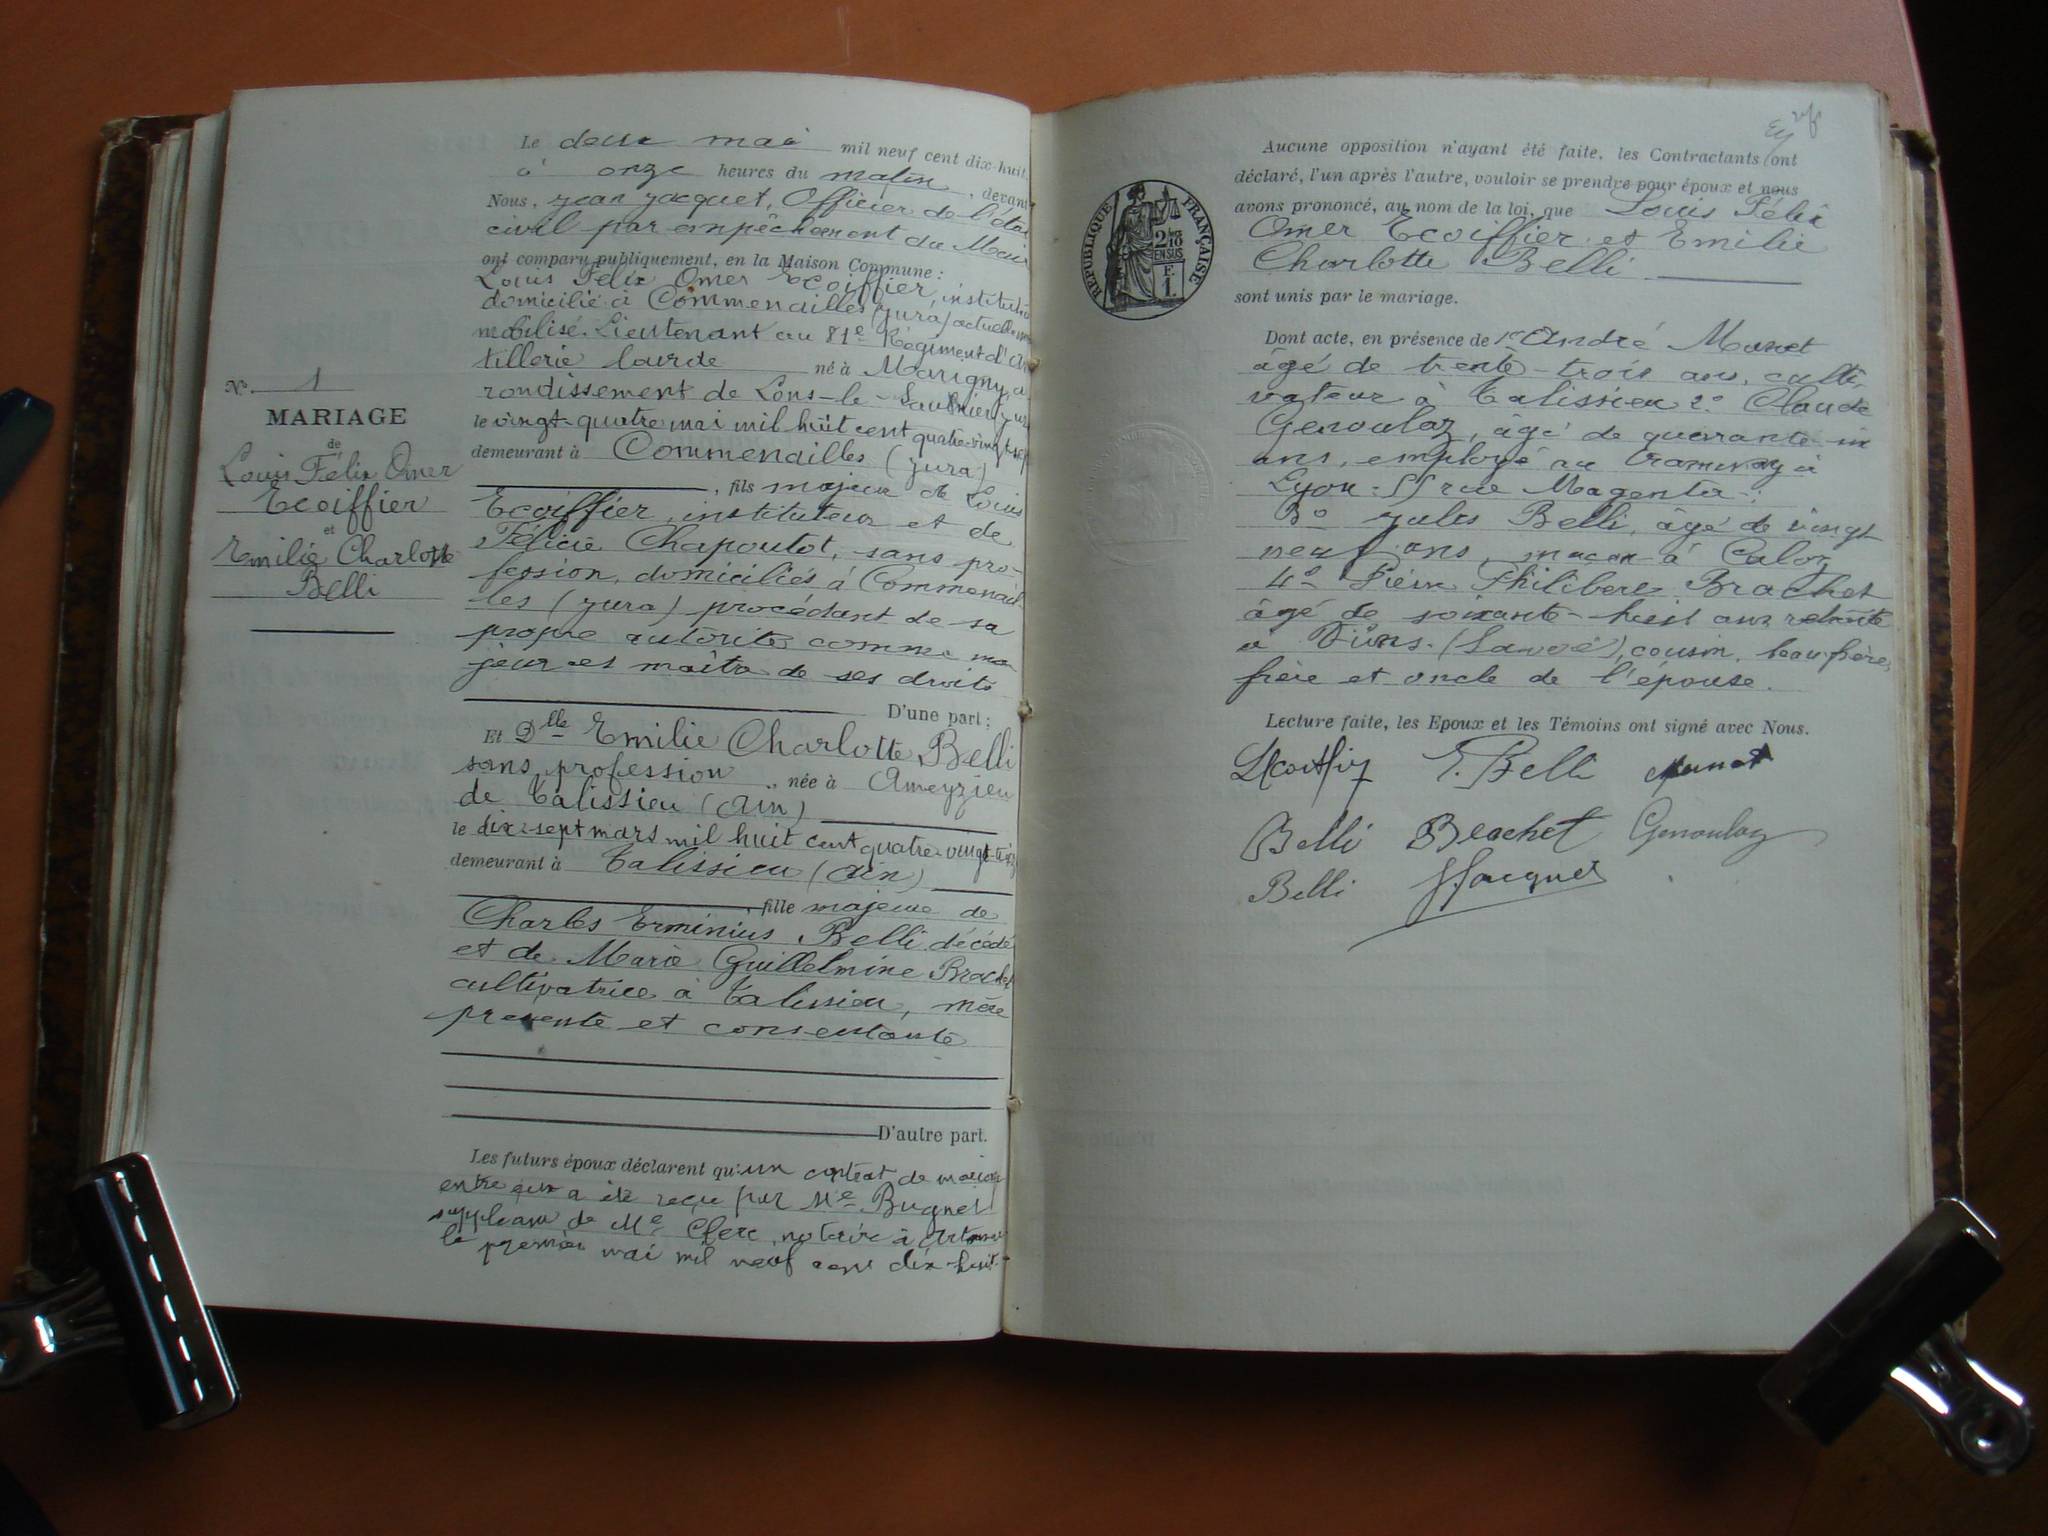 N° 1
MARIAGE
de
Louis Félix Omer
Ecoiffier
et
Emilie Charlotte
Belli
Le deux mai mil neuf cent dix-huit
à onze heures du matin, devant
Nous, Jean Jacquet, Officier de l'état
civil par empêchement du Maire
ont comparu publiquement, en la Maison Commune :
Louis Félix Omer Ecoiffier, institut
domicilié à Commenailles (Jura) actuellem
mobilisé. Lieutenant au 81e Régiment d'Ar
tillerie lourde né à Marigny, a
rondissement de Lons-le-Saulnier
le vingt-quatre mai mil huit cent quatre-vingt-sept
demeurant à Commenailles (Jura)
, fils majeur de Louis
Ecoiffier, instituteur et de
Félicie Chapoutot, sans pro-
fession, domiciliés à Commenail
les (Jura) procédant de sa
propre autorité comme ma
jeur et maître de ses droits
D'une part ;
Et Dlle Emilie Charlotte Belli
sans profession, née à Ameyzieu
de Talissieu (Ain)
le dix-sept mars mil huit cent quatre-vingt-treiz
demeurant à Talissieu (Ain)
, fille majeure de
Charles Erminius Belli décédé
et de Marie Guillelmine Brachet
cultivatrice à Talissieu, mère
présente et consentante
D'autre part.
Les futurs époux déclarent qu'un contrat de mariage
entre eux a été reçu par Me Bugnet
suppléant de Me Clerc, notaire à
le premier mai mil neuf cent dix-huit.
Aucune opposition n'ayant été faite, les Contractants ont
déclaré, l'un après l'autre, vouloir se prendre pour époux et nous
avons prononcé, au nom de la loi, que Louis Félix
Omer Ecoiffier et Emilie
Charlotte Belli
sont unis par le mariage.
RÉPUBLIQUE FRANÇAISE
2/10
EN SUS
F.
1.
Dont acte, en présence de 1° André Monet
âgé de trente-trois ans, culti
vateur à Talissieu 2° Claude
Genoulaz, âgé de quarante-un
ans, employé au tramway à
Lyon. 55 rue Magenta :
3° Jules Belli, âgé de vingt
neuf ans, maçon à Culoz
4° Pierre Philibert Brachet
âgé de soixante-huit ans retraité
à (Savoie), cousin, beau-frère,
frère et oncle de l'épouse.
Lecture faite, les Epoux et les Témoins ont signé avec Nous.
E. Belli
Belli Brachet Genoulaz
Belli JJacquet